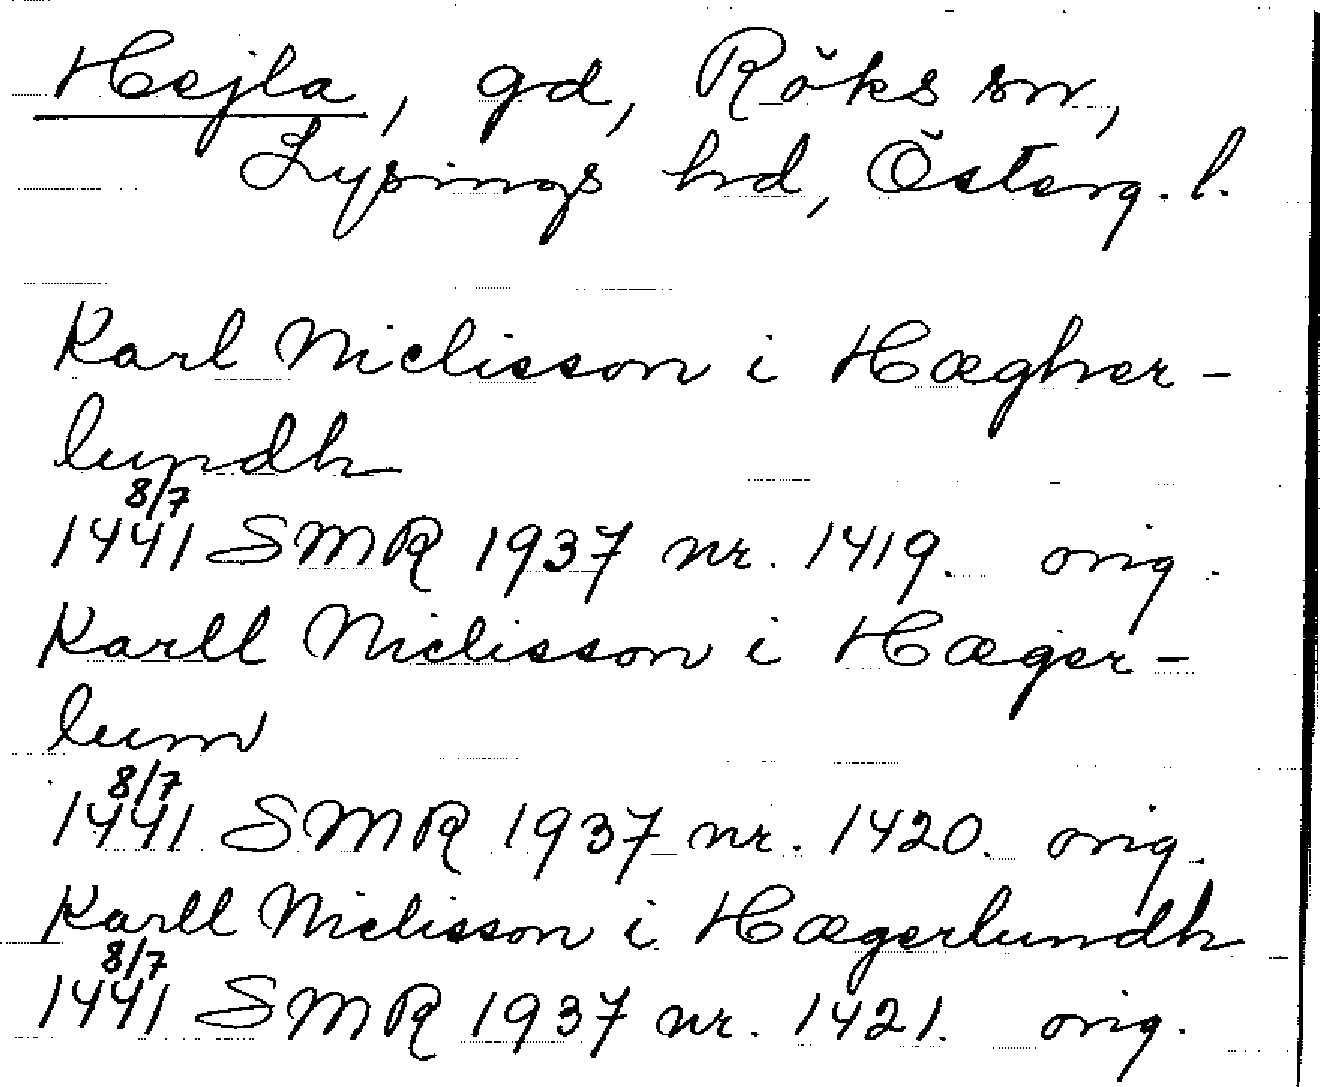 Hejla, gd, Röks sn,
Lysings hd, Österg. l.
Karl Niclisson i Hæghver-
lundh
8/7
1441 SMR 1937 nr. 1419. orig.
Karll Niclisson i Hæger-
lum
8/7
1441 SMR 1937 nr. 1420. orig.
Karll Niclisson i Hægerlundh
8/7
1441 SMR 1937 nr. 1421. orig.